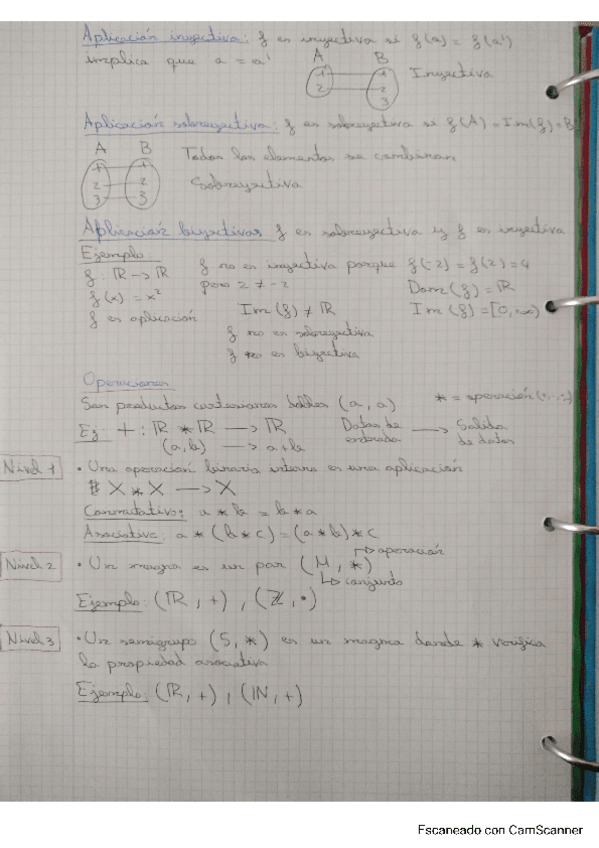 Aplicación inyectiva: f es inyectiva si f(a) = f(a')
implica que a = a'
A B
1 1
2 2
3
Inyectiva
Aplicación sobreyectiva: f es sobreyectiva si f(A) = Im(f) = B
A B
1 1
2 2
3 3
Todos los elementos se combinan
Sobreyectiva
Aplicación biyectivas f es sobreyectiva y f es inyectiva
Ejemplo:
f: ℝ → ℝ
f(x) = x²
f es aplicación
f no es inyectiva porque f(-2) = f(2) = 4
pero 2 ≠ -2
Dom(f) = ℝ
Im(f) ≠ ℝ
Im(f) = [0, ∞)
f no es sobreyectiva
f no es biyectiva
Operaciones
Son productos cartesianos dobles (a, a)
* = operación (+, ·, -)
Ej: + : ℝ * ℝ → ℝ
(a, b) → a+b
Datos de entrada → Salida de datos
Nivel 1
· Una operación binaria interna es una aplicación
X * X → X
Conmutativo: a * b = b * a
Asociativo: a * (b * c) = (a * b) * c
Nivel 2
· Un magma es un par (M, *)
→ operación
↳ conjunto
Ejemplo: (ℝ, +), (ℤ, ·)
Nivel 3
· Un semigrupo (S, *) es un magma donde * verifica
la propiedad asociativa
Ejemplo: (ℝ, +), (ℕ, +)
Escaneado con CamScanner